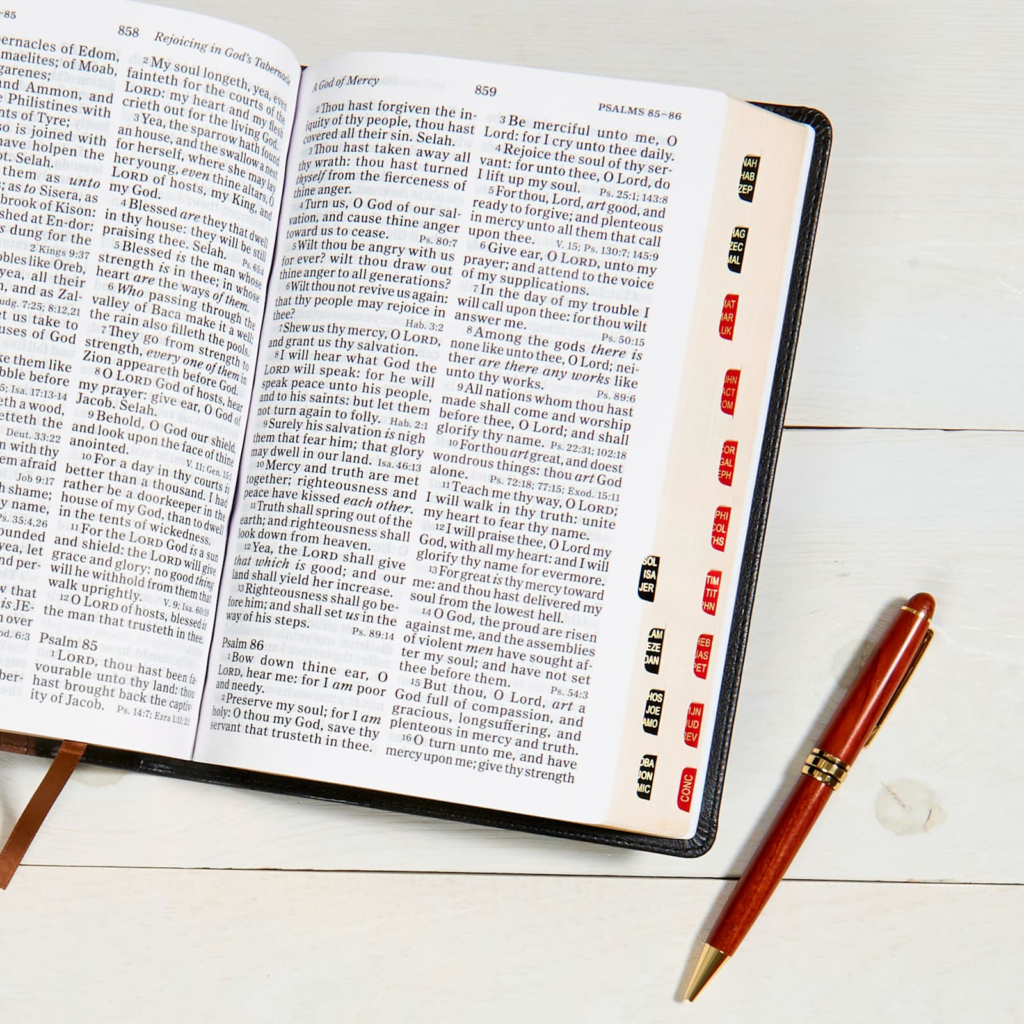 -85
858
Rejoicing in God's Tabernacle
ernacles of Edom,
maelites; of Moab,
garenes;
nd Ammon, and
Philistines with
nts of Tyre;
so is joined with
have holpen the
ot. Selah.
them as unto
; as to Sisera, as
brook of Kison:
shed at En-dor:
s dung for the
2 Kings 9:37
obles like Oreb,
yea, all their
h, and as Zal-
udg. 7:25; 8:12,21
et us take to
uses of God
ke them like
bble before
5; Isa. 17:13-14
eth a wood,
etteth the
Deut. 33:22
n with thy
em afraid
Job 9:17
shame;
y name,
Ps. 35:4,26
ounded
yea, let
d per-
w that
is JE-
n over
od. 6:3
2 My soul longeth, yea, even
fainteth for the courts of the
LORD: my heart and my flesh
crieth out for the living God.
3 Yea, the sparrow hath found
an house, and the swallow a nest
for herself, where she may lay
her young, even thine altars, O
LORD of hosts, my King, and
my God.
4 Blessed are they that dwell
in thy house: they will be still
praising thee. Selah. Ps. 65:4
5 Blessed is the man whose
strength is in thee; in whose
heart are the ways of them.
6 Who passing through the
valley of Baca make it a well;
the rain also filleth the pools.
7 They go from strength to
strength, every one of them in
Zion appeareth before God.
8 O LORD God of hosts, hear
my prayer: give ear, O God of
Jacob. Selah.
9 Behold, O God our shield,
and look upon the face of thine
anointed. V. 11; Gen. 15:1
10 For a day in thy courts is
better than a thousand. I had
rather be a doorkeeper in the
house of my God, than to dwell
in the tents of wickedness.
11 For the LORD God is a sun
and shield: the LORD will give
grace and glory: no good thing
will he withhold from them that
walk uprightly. V. 9; Isa. 60:19
12 O LORD of hosts, blessed is
the man that trusteth in thee.
Psalm 85
1 LORD, thou hast been fa-
vourable unto thy land: thou
hast brought back the captiv-
ity of Jacob. Ps. 14:7; Ezra 1:11; 2:1
A God of Mercy
859
PSALMS 85–86
2 Thou hast forgiven the in-
iquity of thy people, thou hast
covered all their sin. Selah.
3 Thou hast taken away all
thy wrath: thou hast turned
thyself from the fierceness of
thine anger.
4 Turn us, O God of our sal-
vation, and cause thine anger
toward us to cease. Ps. 80:7
5 Wilt thou be angry with us
for ever? wilt thou draw out
thine anger to all generations?
6 Wilt thou not revive us again:
that thy people may rejoice in
thee? Hab. 3:2
7 Shew us thy mercy, O LORD,
and grant us thy salvation.
8 I will hear what God the
LORD will speak: for he will
speak peace unto his people,
and to his saints: but let them
not turn again to folly. Hab. 2:1
9 Surely his salvation is nigh
them that fear him; that glory
may dwell in our land. Isa. 46:13
10 Mercy and truth are met
together; righteousness and
peace have kissed each other.
11 Truth shall spring out of the
earth; and righteousness shall
look down from heaven.
12 Yea, the LORD shall give
that which is good; and our
land shall yield her increase.
13 Righteousness shall go be-
fore him; and shall set us in the
way of his steps. Ps. 89:14
Psalm 86
1 Bow down thine ear, O
LORD, hear me: for I am poor
and needy.
2 Preserve my soul; for I am
holy: O thou my God, save thy
servant that trusteth in thee.
3 Be merciful unto me, O
Lord: for I cry unto thee daily.
4 Rejoice the soul of thy ser-
vant: for unto thee, O Lord, do
I lift up my soul. Ps. 25:1; 143:8
5 For thou, Lord, art good, and
ready to forgive; and plenteous
in mercy unto all them that call
upon thee. V. 15; Ps. 130:7; 145:9
6 Give ear, O LORD, unto my
prayer; and attend to the voice
of my supplications.
7 In the day of my trouble I
will call upon thee: for thou wilt
answer me. Ps. 50:15
8 Among the gods there is
none like unto thee, O Lord; nei-
ther are there any works like
unto thy works. Ps. 89:6
9 All nations whom thou hast
made shall come and worship
before thee, O Lord; and shall
glorify thy name. Ps. 22:31; 102:18
10 For thou art great, and doest
wondrous things: thou art God
alone. Ps. 72:18; 77:15; Exod. 15:11
11 Teach me thy way, O LORD;
I will walk in thy truth: unite
my heart to fear thy name.
12 I will praise thee, O Lord my
God, with all my heart: and I will
glorify thy name for evermore.
13 For great is thy mercy toward
me: and thou hast delivered my
soul from the lowest hell.
14 O God, the proud are risen
against me, and the assemblies
of violent men have sought af-
ter my soul; and have not set
thee before them. Ps. 54:3
15 But thou, O Lord, art a
God full of compassion, and
gracious, longsuffering, and
plenteous in mercy and truth.
16 O turn unto me, and have
mercy upon me; give thy strength
SOL
ISA
JER
LAM
EZE
DAN
HOS
JOE
AMO
OBA
JON
MIC
NAH
HAB
ZEP
HAG
ZEC
MAL
MAT
MAR
LUK
JHN
ACT
ROM
COR
GAL
EPH
PHI
COL
THS
TIM
TIT
PHN
HEB
JAS
PET
1JN
JUD
REV
CONC